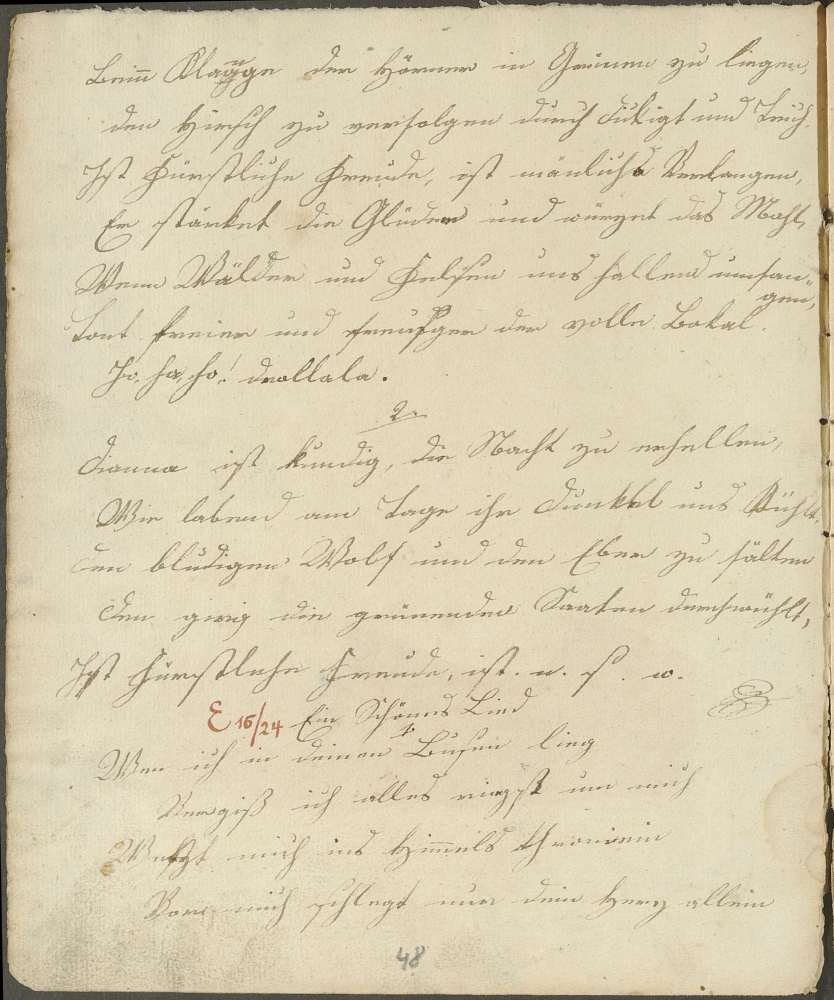 Beim Klagge der Hörner in Grünen zu liegen,
den Hirsch zu verfolgen durch Dikigt und Teich.
Ist Fürstliche Freude, ist mänlichs Verlangen,
Er stärket die Glüder und würzet das Mahl,
Wenn Wälder und Felsen uns hallend umfan-
gen,
Tönt freier und freud'ger der volle Bokal.
Jo, ha, ho! drallala.
2.
Dianna ist kundig, die Nacht zu erhellen,
Wie labend am Tage ihr Dunkel uns Kühlt,
Den bludigen Wolf und den Eber zu fälten
Den girig die grünenden Saaten durchwühlt,
Ist Fürstliche Freude, ist. u. s. w.
E 16/24 Ein Schönes Lied
1.
Wen ich in deinen Busen lieg
Vergiß ich alles ringst um mich
mich ins Himmels thron ein
Vor mich schlegt nur dein Herz allein
48